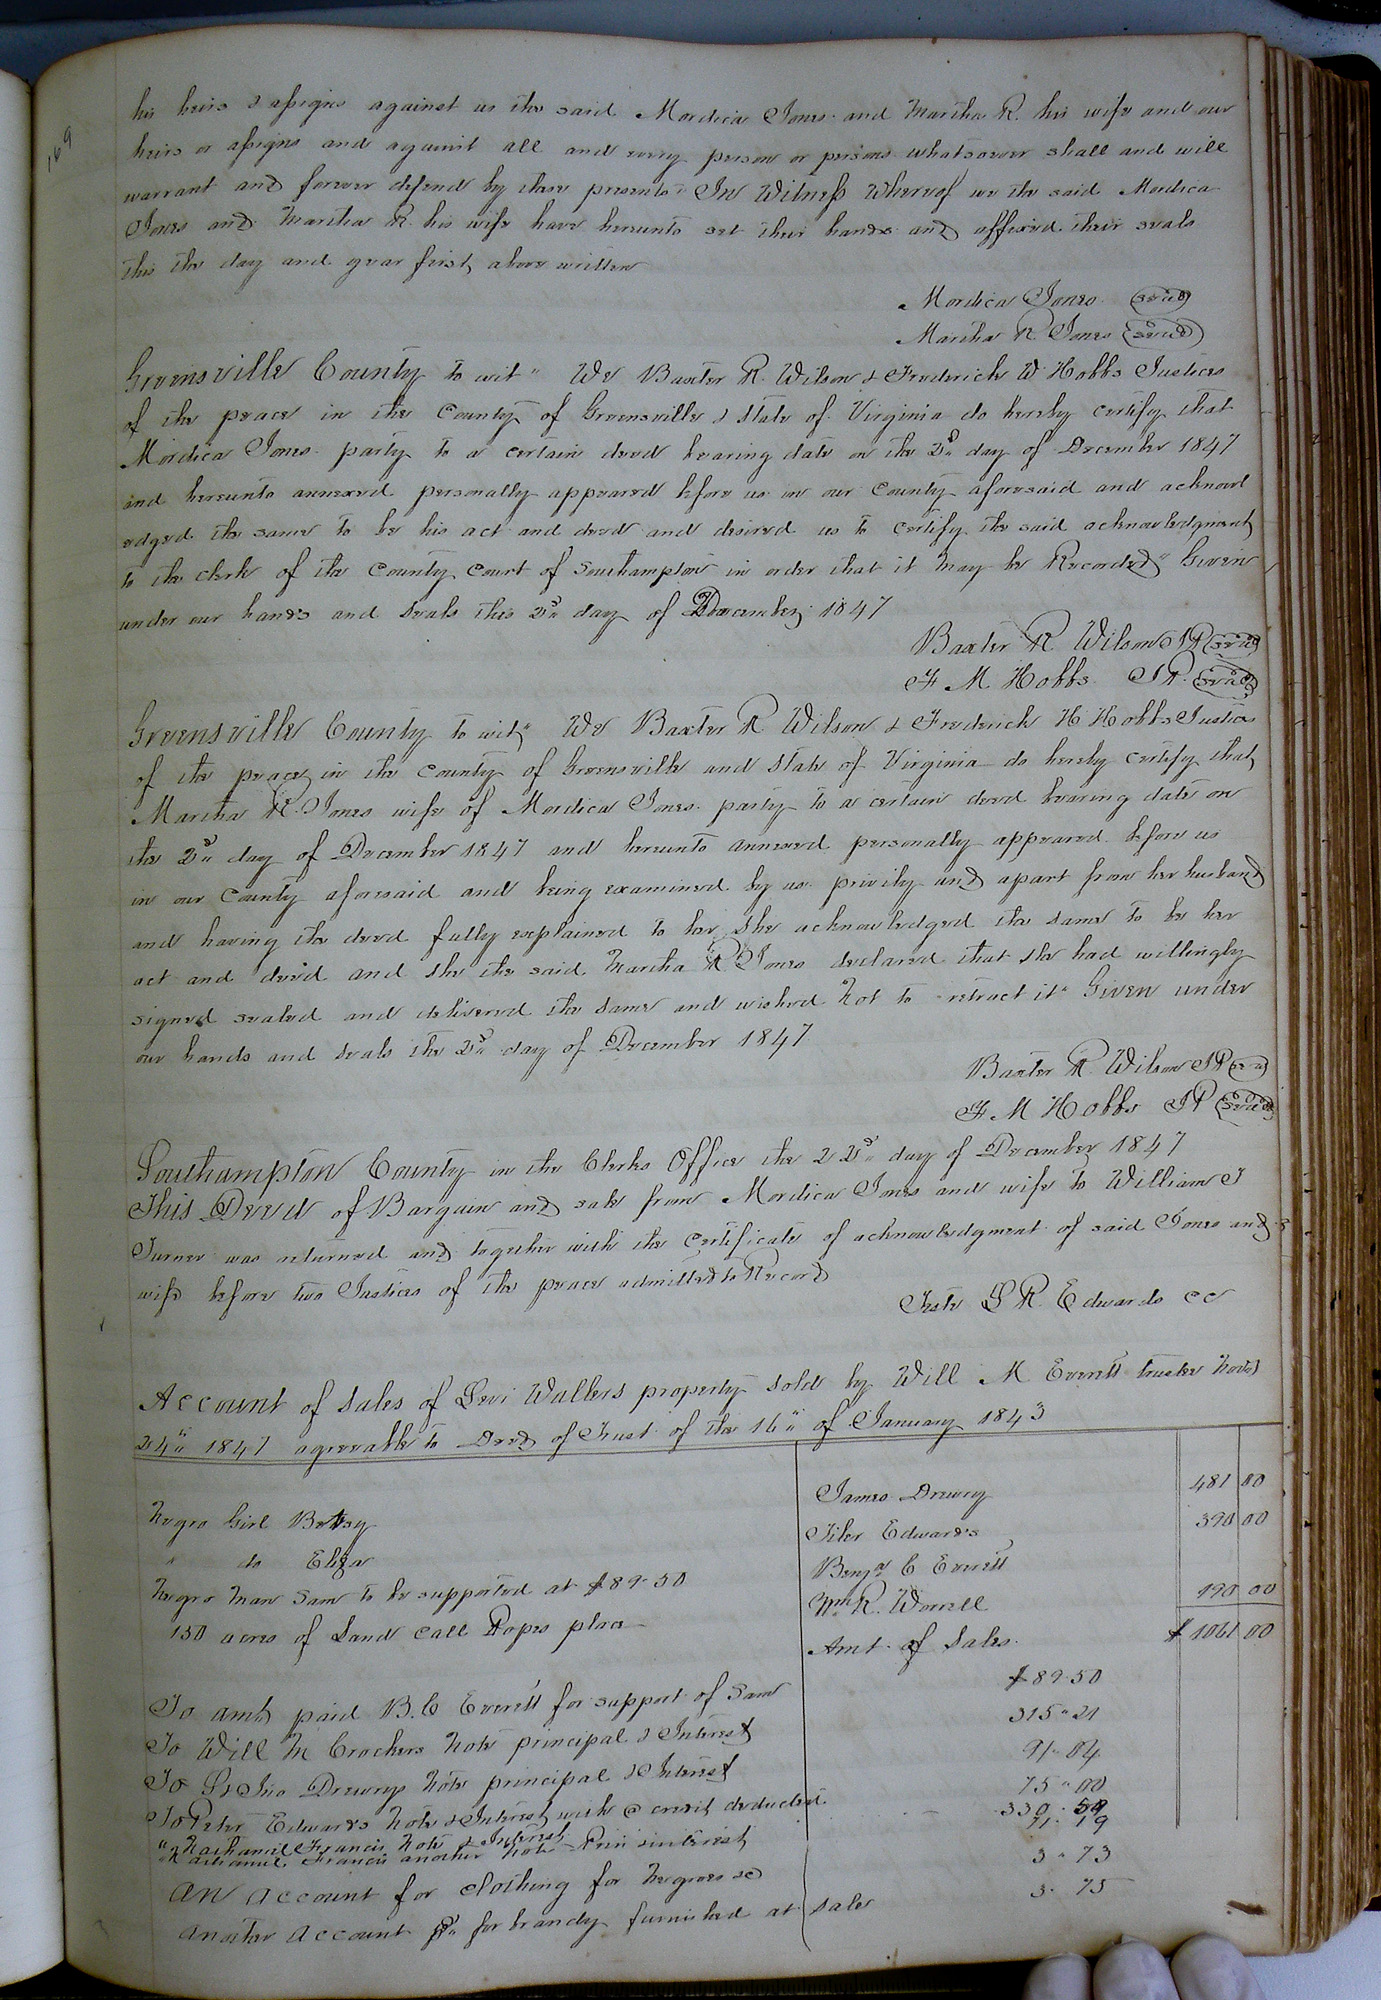 169
his heirs & assigns against us the said Mordica Jones and Martha R. his wife and our
heirs or assigns and against all and every person or persons whatsoever shall and will
warrant and forever defend by these presents" In Witness Whereof we the said Mordica
Jones and Martha R. his wife have hereunto set their hands and affixed their seals
this the day and year first above written
Mordica Jones (seal)
Martha R Jones (seal)
Greensville County to wit" We Baxter R. Wilson & Frederick W Hobbs Justices
of the peace in the County of Greensville & State of Virginia do hereby certify that
Mordica Jones party to a certain deed bearing date on the day of December 1847
and hereunto annexed personally appeared before us in our County aforesaid and acknowl
edged the same to be his act and deed and desired us to certify the said acknowledgment
to the clerk of the County Court of Southampton in order that it may be Recorded" Given
under our hands and seals this day of December 1847
Baxter R Wilson JP (seal)
F M Hobbs JP. (seal)
Greensville County to wit" We Baxter R Wilson & Frederick H Hobbs Justices
of the peace in the County of Greensville and State of Virginia do hereby certify that
Martha R. Jones wife of Mordica Jones party to a certain deed bearing date on
the day of December 1847 and hereunto annexed personally appeared before us
in our County aforesaid and being examined by us privily and apart from her husband
and having the deed fully explained to her she acknowledged the same to be her
act and deed and she the said Martha R Jones declared that she had willingly
signed sealed and delivered the same and wished Not to retract it" Given under
our hands and seals the day of December 1847
Baxter R. Wilson JP (seal)
F M Hobbs JP (seal)
Southampton County in the Clerks Office the day of December 1847
This Deed of Bargain and sale from Mordica Jones and wife to William J
Turner was returned and together with the Certificate of acknowledgment of said Jones and
wife before two Justices of the peace admitted to Record
Teste L R. Edwards CC
Account of sales of Levi Wallers property sold by Will M Everett trustee Novr
24th 1847 agreeable to Deed of Trust of the 16th of January 1843
Negro Girl Betsy James Drewry 481 00
" do Eliza Edwards 390 00
Negro Man Sam to be supported at $89.50 Benja C Everett
150 acres of Land Call Popes place Wm R. Worrell 190 00
Amt. of Sales. $ 1061 00
To amt paid B. C Everett for support of Sam $89.50
To Will M Crockers Note principal & Interest 315"21
To Jno Drewrys Note principal & Interest 91.04
To Peter Edwards Note & Interest with a credit deducted 75"00
" Nathaniel Francis Note & Interest 330.
" Nathaniel Francis another Note Prin & interest 71.19
An Account for clothing for Negroes &c 3"73
Another Account for brandy furnished at sale 3.75